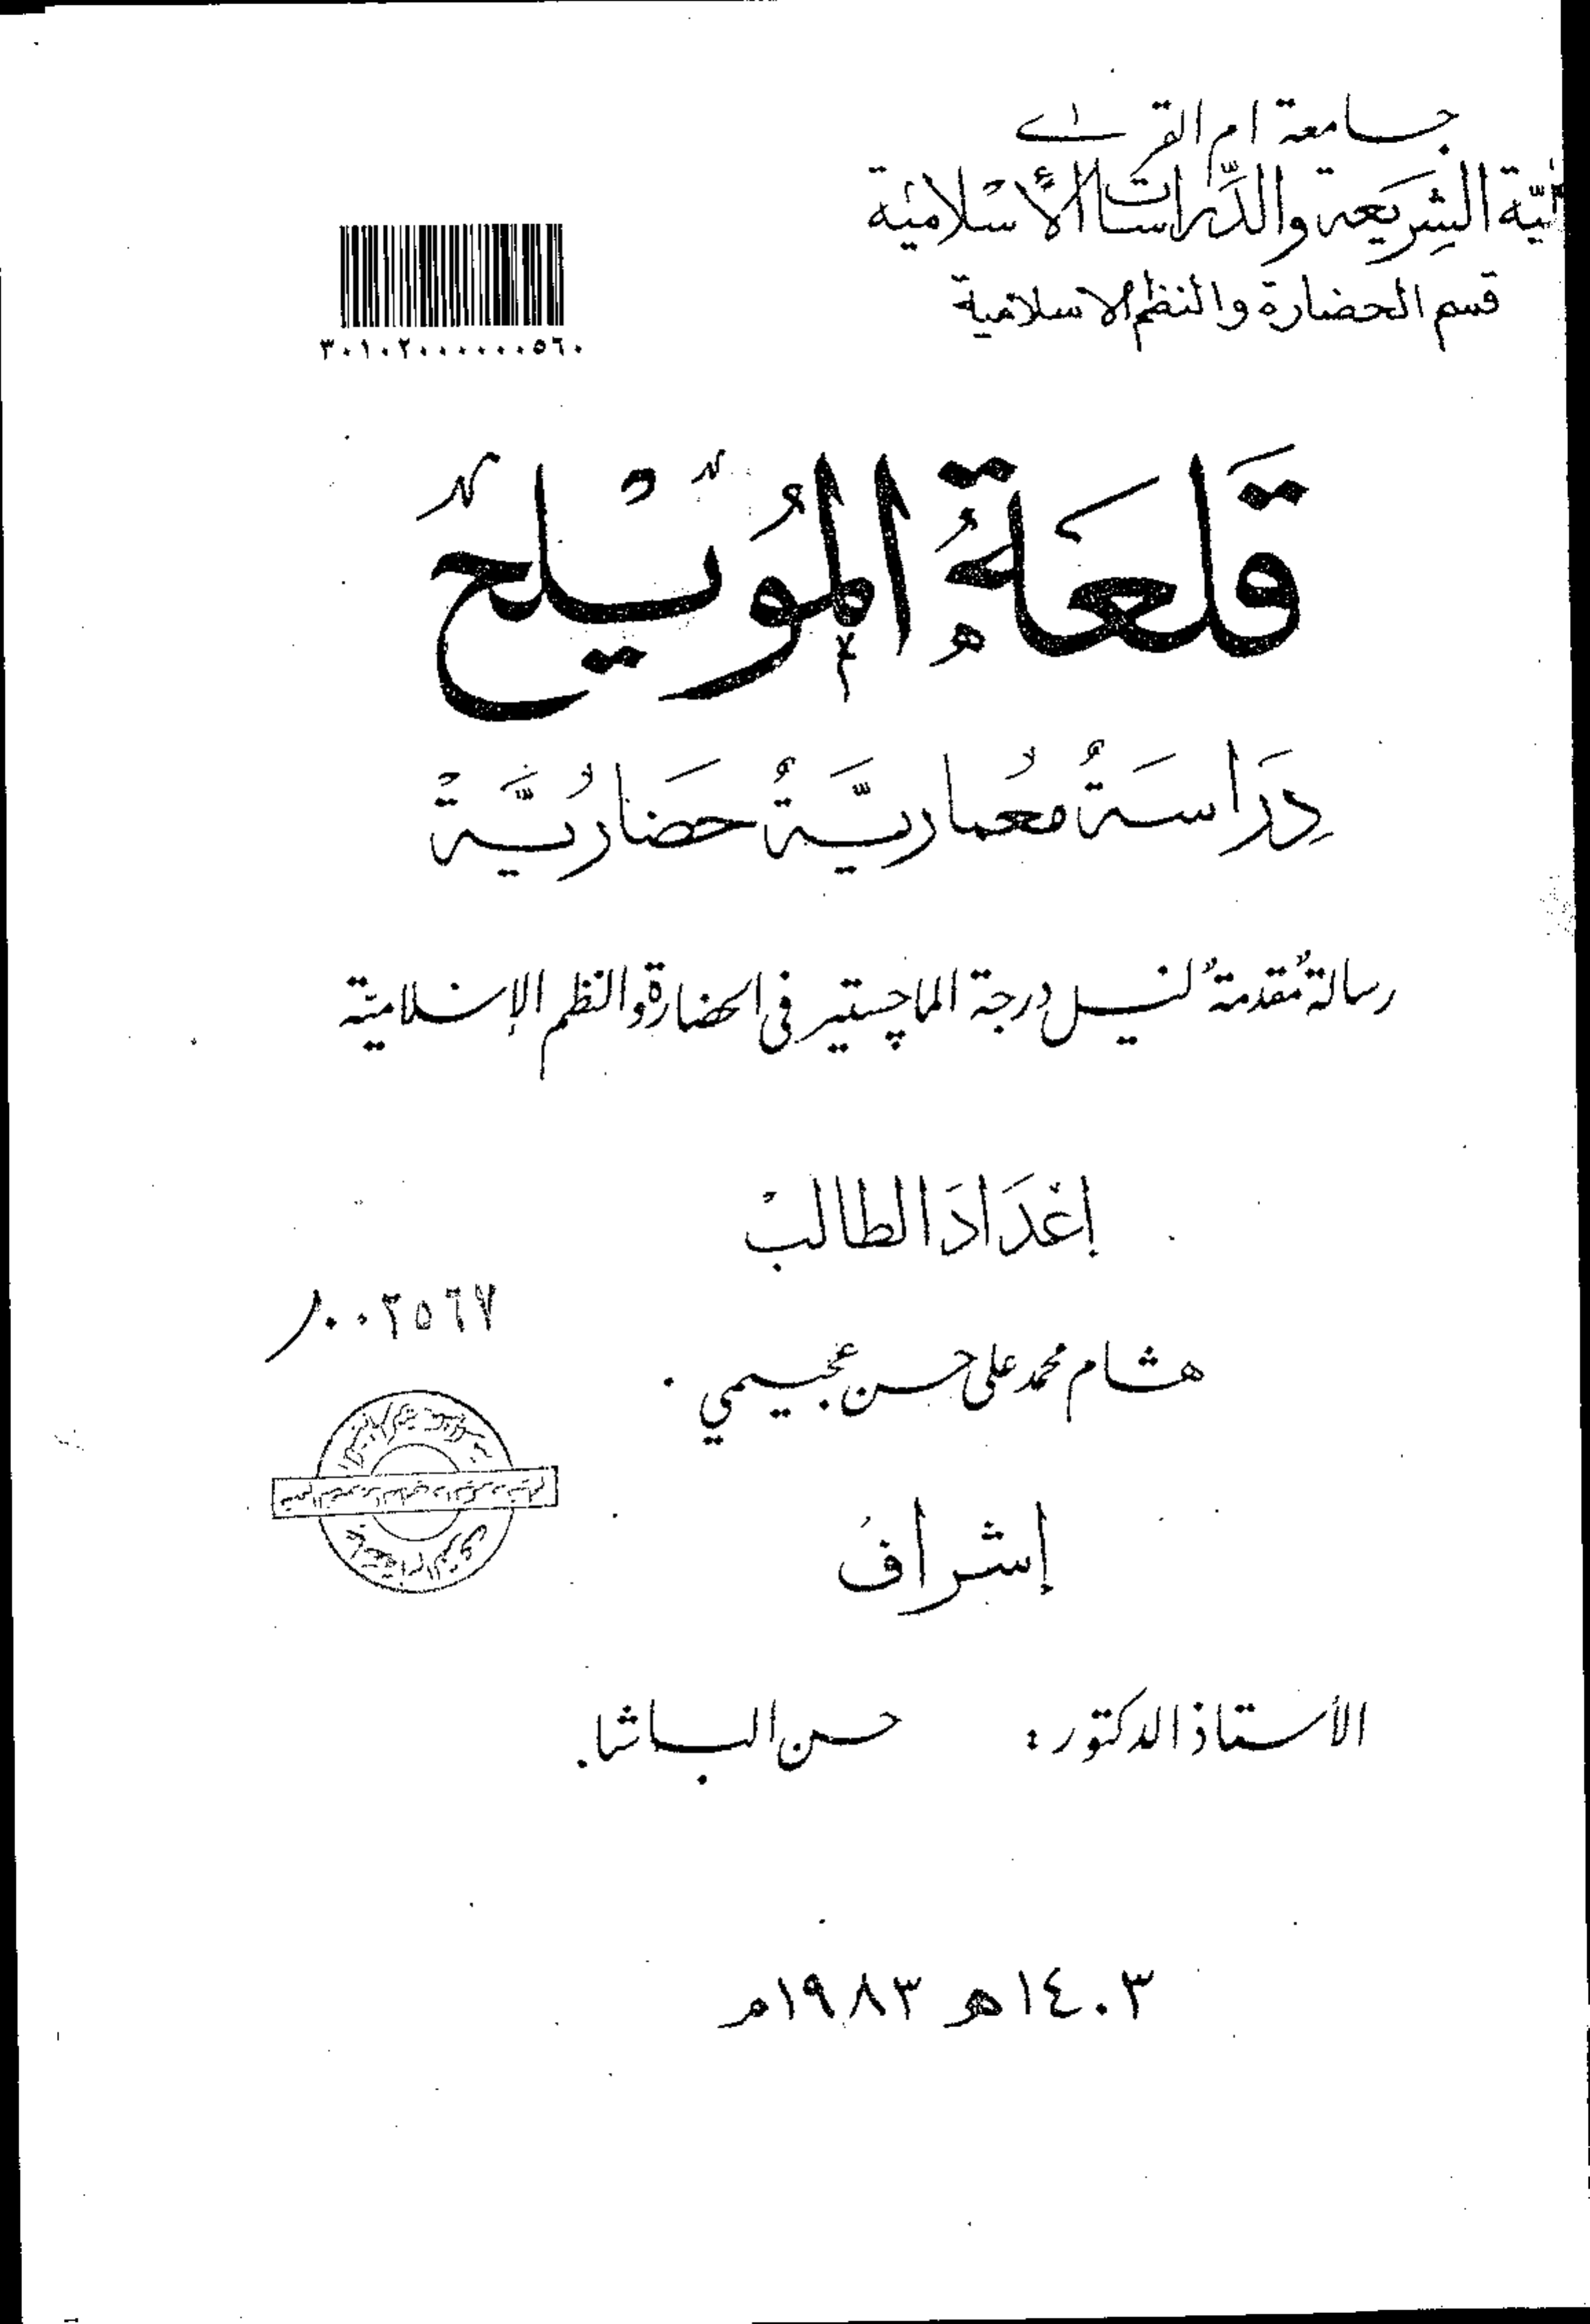 جامعة ام القرى
ليّة الشريعة والدّراسات الأسلامية
قسم الحضارة والنظم الاسلامية
٣٠١٠٢٠٠٠٠٠٠٥٦٠
قَلعَةُ المُوَيْلحْ
دِرَاسَةُ معُماريَّةُ حَضَاريَّةْ
رسالةٌ مقدمةٌ لنيل درجة الماچستير فى الحضارة والنظم الإسلاميّة
إعْدَادَ الطالبْ
٠٠٢٥٦٧
هشام محمد على حسن عجيمي .
إشرافُ
الأستاذ الدكتور : حسن الباشا.
١٤٠٣ه ١٩٨٣م